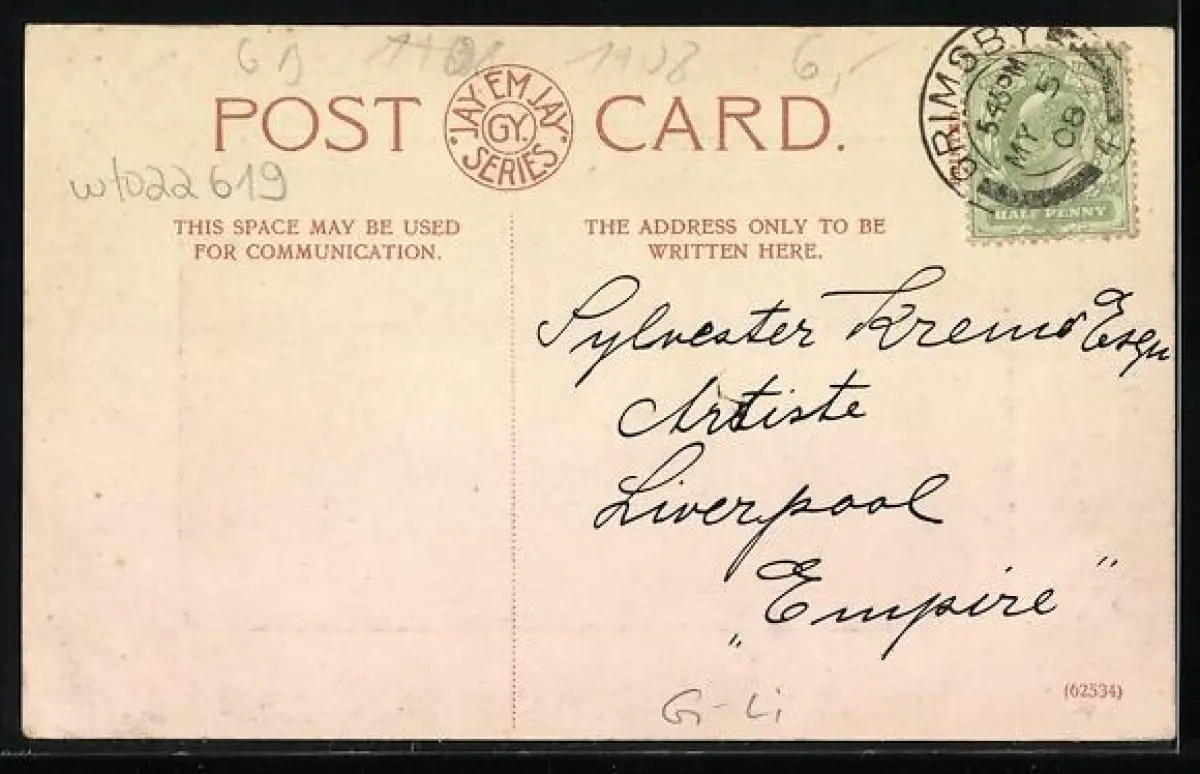 GB 1908 1908 6,-
POST CARD.
JAY·EM·JAY·
GY.
SERIES
GRIMSBY
5.45PM
MY 5
08
HALF PENNY
wt022619
THIS SPACE MAY BE USED
FOR COMMUNICATION.
THE ADDRESS ONLY TO BE
WRITTEN HERE.
Sylvester Kremo Esqu
Artiste
Liverpool
„Empire"
(62534)
G-Li